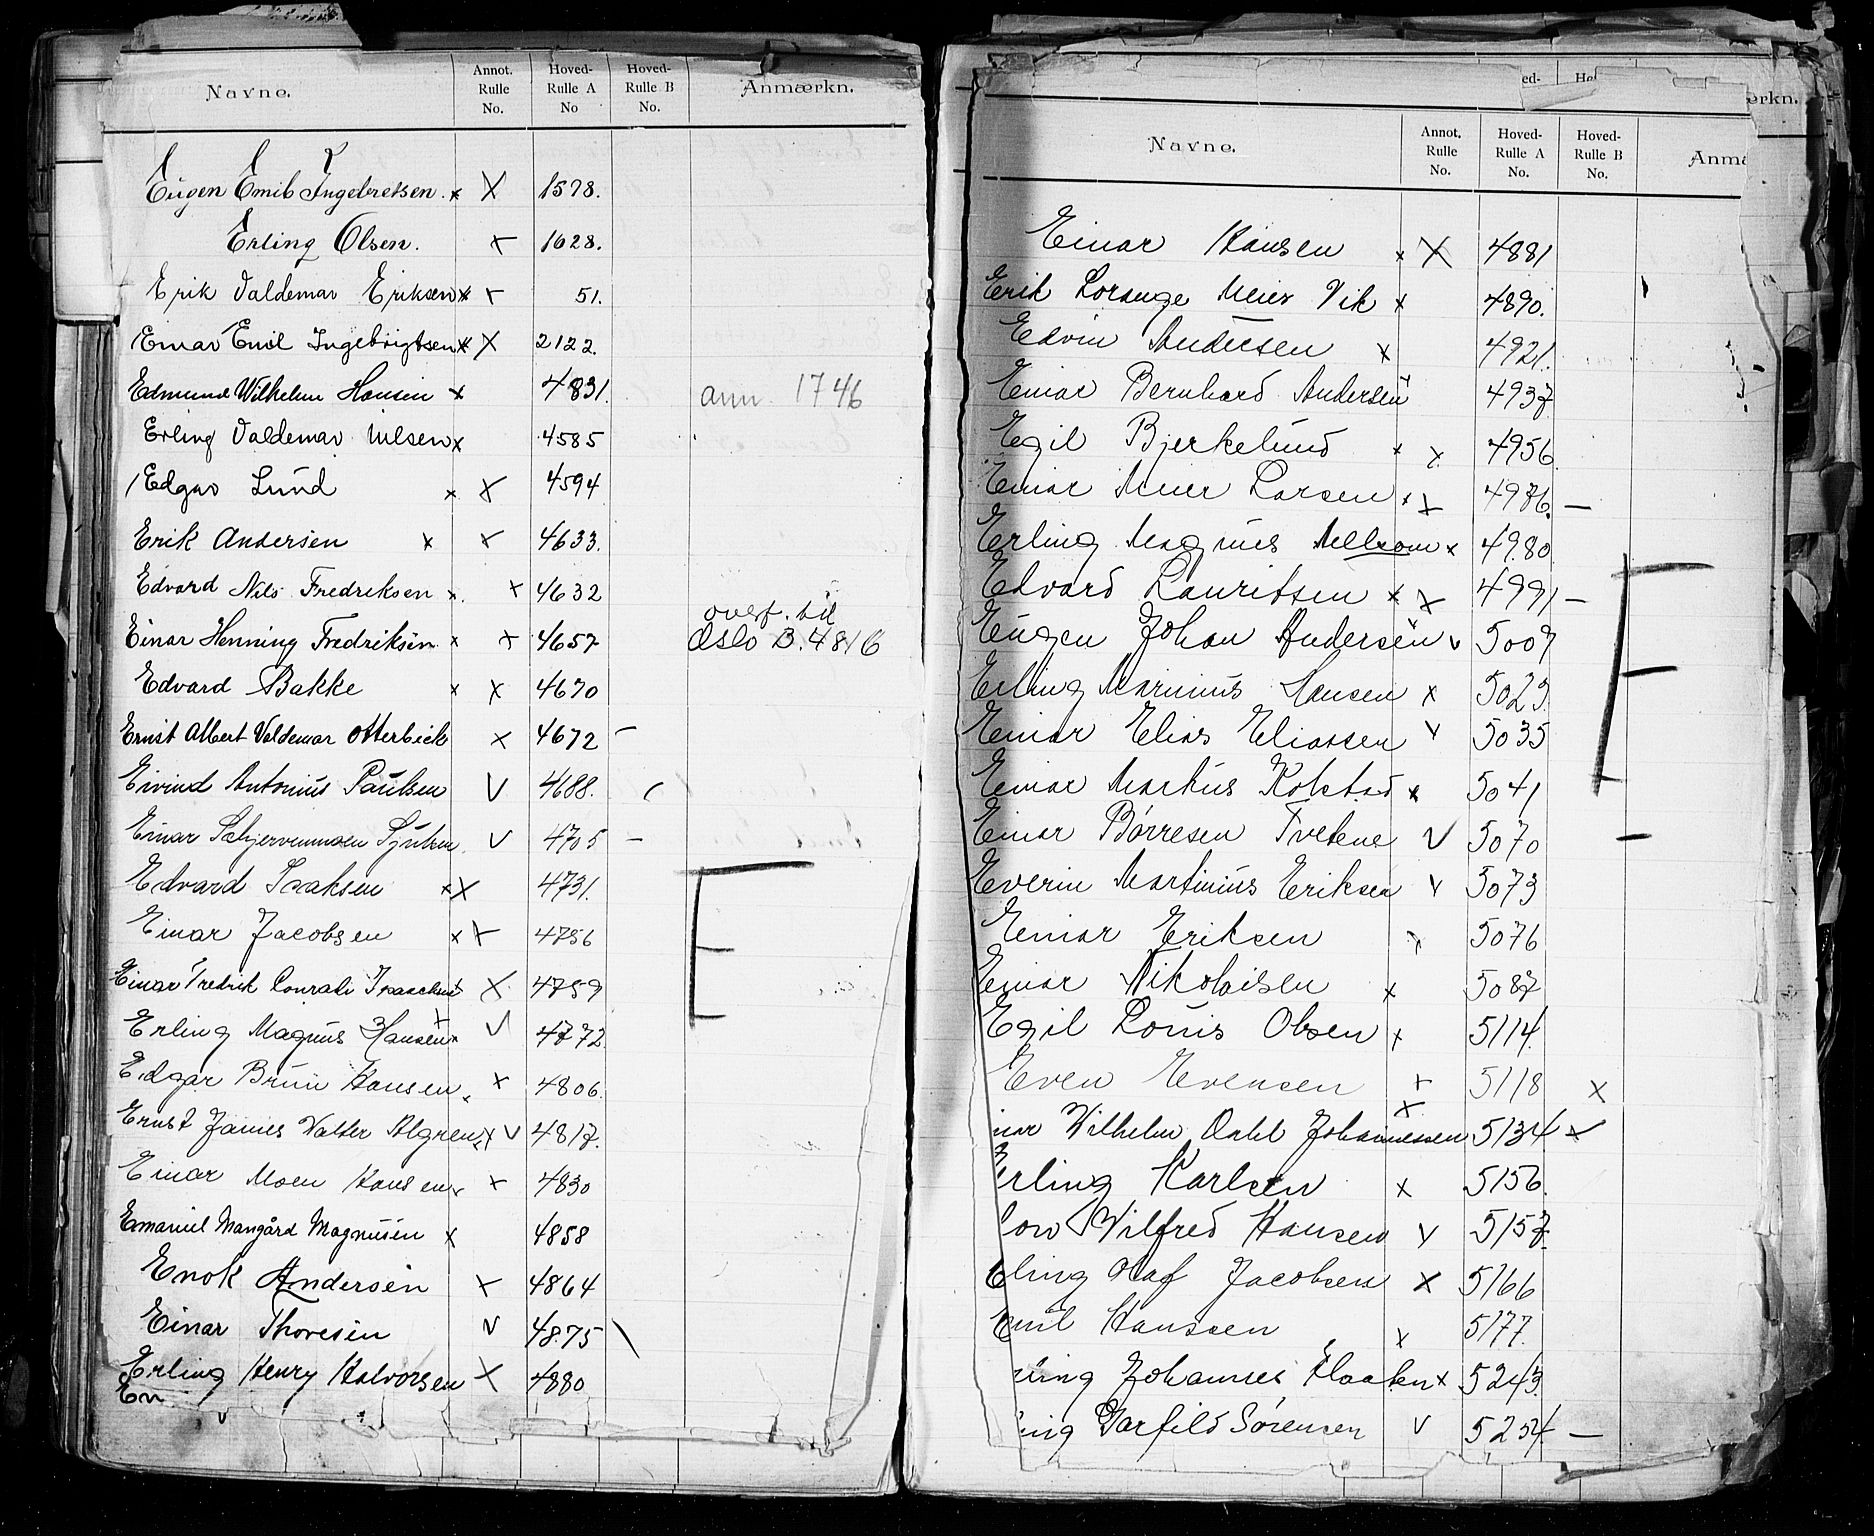 Navne. Annot. Rulle No. Hoved- Rulle A No Hoved- Rulle B No. Anmærkn.
Eugen Emil Ingebretsen. x X 1578.
Erling Olsen. x 1628.
Erik Valdemar Eriksen x x 51.
Einar Emil Ingebrigtsen x X 2122.
Edmund Wilhelm Hansen x 4831. ann. 1746
Erling Valdemar Nilsen x 4585
Edgar Lund x X 4594
Erik Andersen x x 4633.
Edvard Nils Fredriksen x. x 4632
Einar Henning Fredriksen x x 4657 overf. til Oslo B. 4816
Edvard Bakke x x 4670
Ernst Albert Valdemar Otterbeck x 4672 –
Eivind Antonius Paulsen V 4688.
Einar V 4705 –
Edvard Isaksen x X 4731.
E
Einar Jacobsen x x 4756
Einar Fredrik Conradi X 4759
Erling Magnus Hansen x V 4772
Edgar Brun Hansen x x 4806.
Ernst James Valter Algren x V 4817.
Einar Moen Hansen x x 4830
Emanuel Mangård Magnusen x 4858
Enok Andersen x 4864
Einar Thoresen V 4875 \
Erling Henry Halvorsen X 4880
En
ed- Ho erkn.
Navne. Annot. Rulle No. Hoved- Rulle A No. Hoved- Rulle B No. Anmæ
Einar Hansen x X 4881
Erik Lorange Meier Vik x 4890.
Edvin Andersen x 4921.
Einar Bernhard Andersen 4937
Egil Bjerkelund x x 4956
Einar Meier Larsen x x 4976. –
Erling Magnus Mellrom x 4980
Edvard Lauritsen x x 4991 –
E
Eugen Johan Andersen v 5007
Erling Marinius Hansen x 5023.
Einar Elias Eliassen v 5035
Einar Markus Kolstad x 5041
Einar Børresen Tvetene V 5070 –
Everin Martinius Eriksen v 5073
Einar Eriksen x 5076
Einar Nikolaisen x 5087
Egil Louis Olsen x 5114.
Even Evensen x 5118 x
nar Wilhelm Dahl Johannessen x 5134 x
rling Karlsen x 5156.
Wilfred Hansen v 5157.
Eling Olaf Jacobsen x 5166
Emil Hanssen x 5177.
ling Johannes Flaaten x 5243.
ing Garfild Sørensen V 5254. –